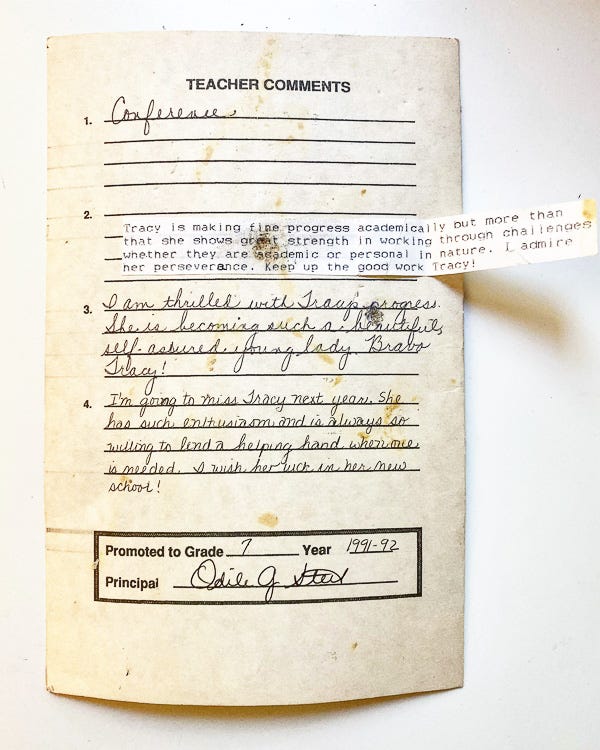 TEACHER COMMENTS
1. Conference
2.
Tracy is making fine progress academically but more than
that she shows great strength in working through challenges
whether they are academic or personal in nature. I admire
her perseverance. Keep up the good work Tracy!
3. I am thrilled with Tracy progress.
She is becoming such a beautiful,
self-assured young lady. Bravo
Tracy!
4. I'm going to miss Tracy next year. She
has such enthusiasm and is always so
willing to lend a helping hand when one
is needed. I wish her luck in her new
school!
Promoted to Grade 7 Year 1991-92
Principal Odile G